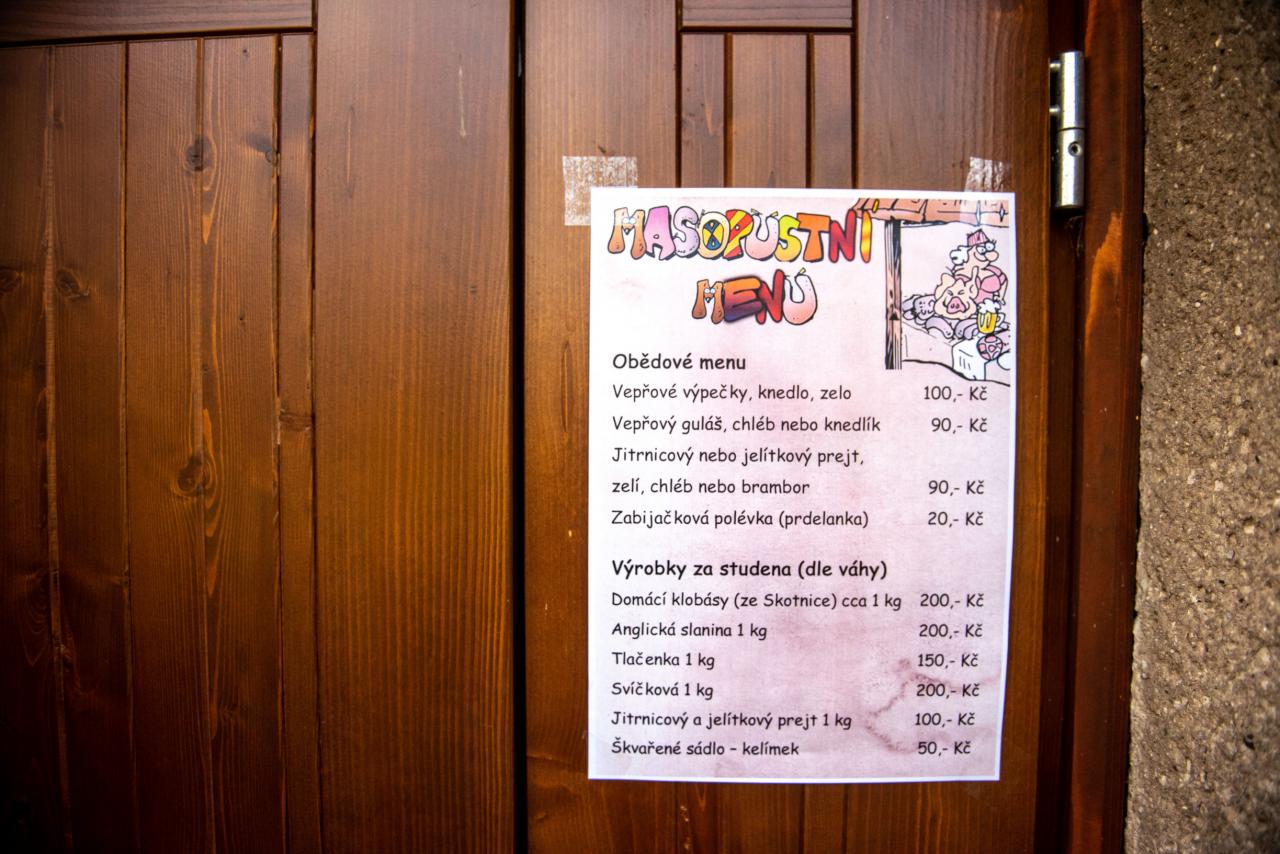 MASOPUSTNÍ
MENU
Obědové menu
Vepřové výpečky, knedlo, zelo 100,- Kč
Vepřový guláš, chléb nebo knedlík 90,- Kč
Jitrnicový nebo jelítkový prejt,
zelí, chléb nebo brambor 90,- Kč
Zabijačková polévka (prdelanka) 20,- Kč
Výrobky za studena (dle váhy)
Domácí klobásy (ze Skotnice) cca 1 kg 200,- Kč
Anglická slanina 1 kg 200,- Kč
Tlačenka 1 kg 150,- Kč
Svíčková 1 kg 200,- Kč
Jitrnicový a jelítkový prejt 1 kg 100,- Kč
Škvařené sádlo – kelímek 50,- Kč